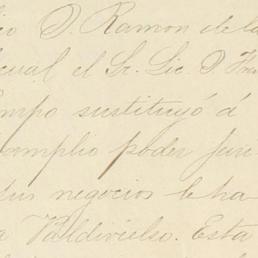 io D. Ramon de la
cual el Sr. Lic. D. Fra
ampo sustituyó á
amplio poder jur
sus negocios le ha
a Valdivielso. Esta